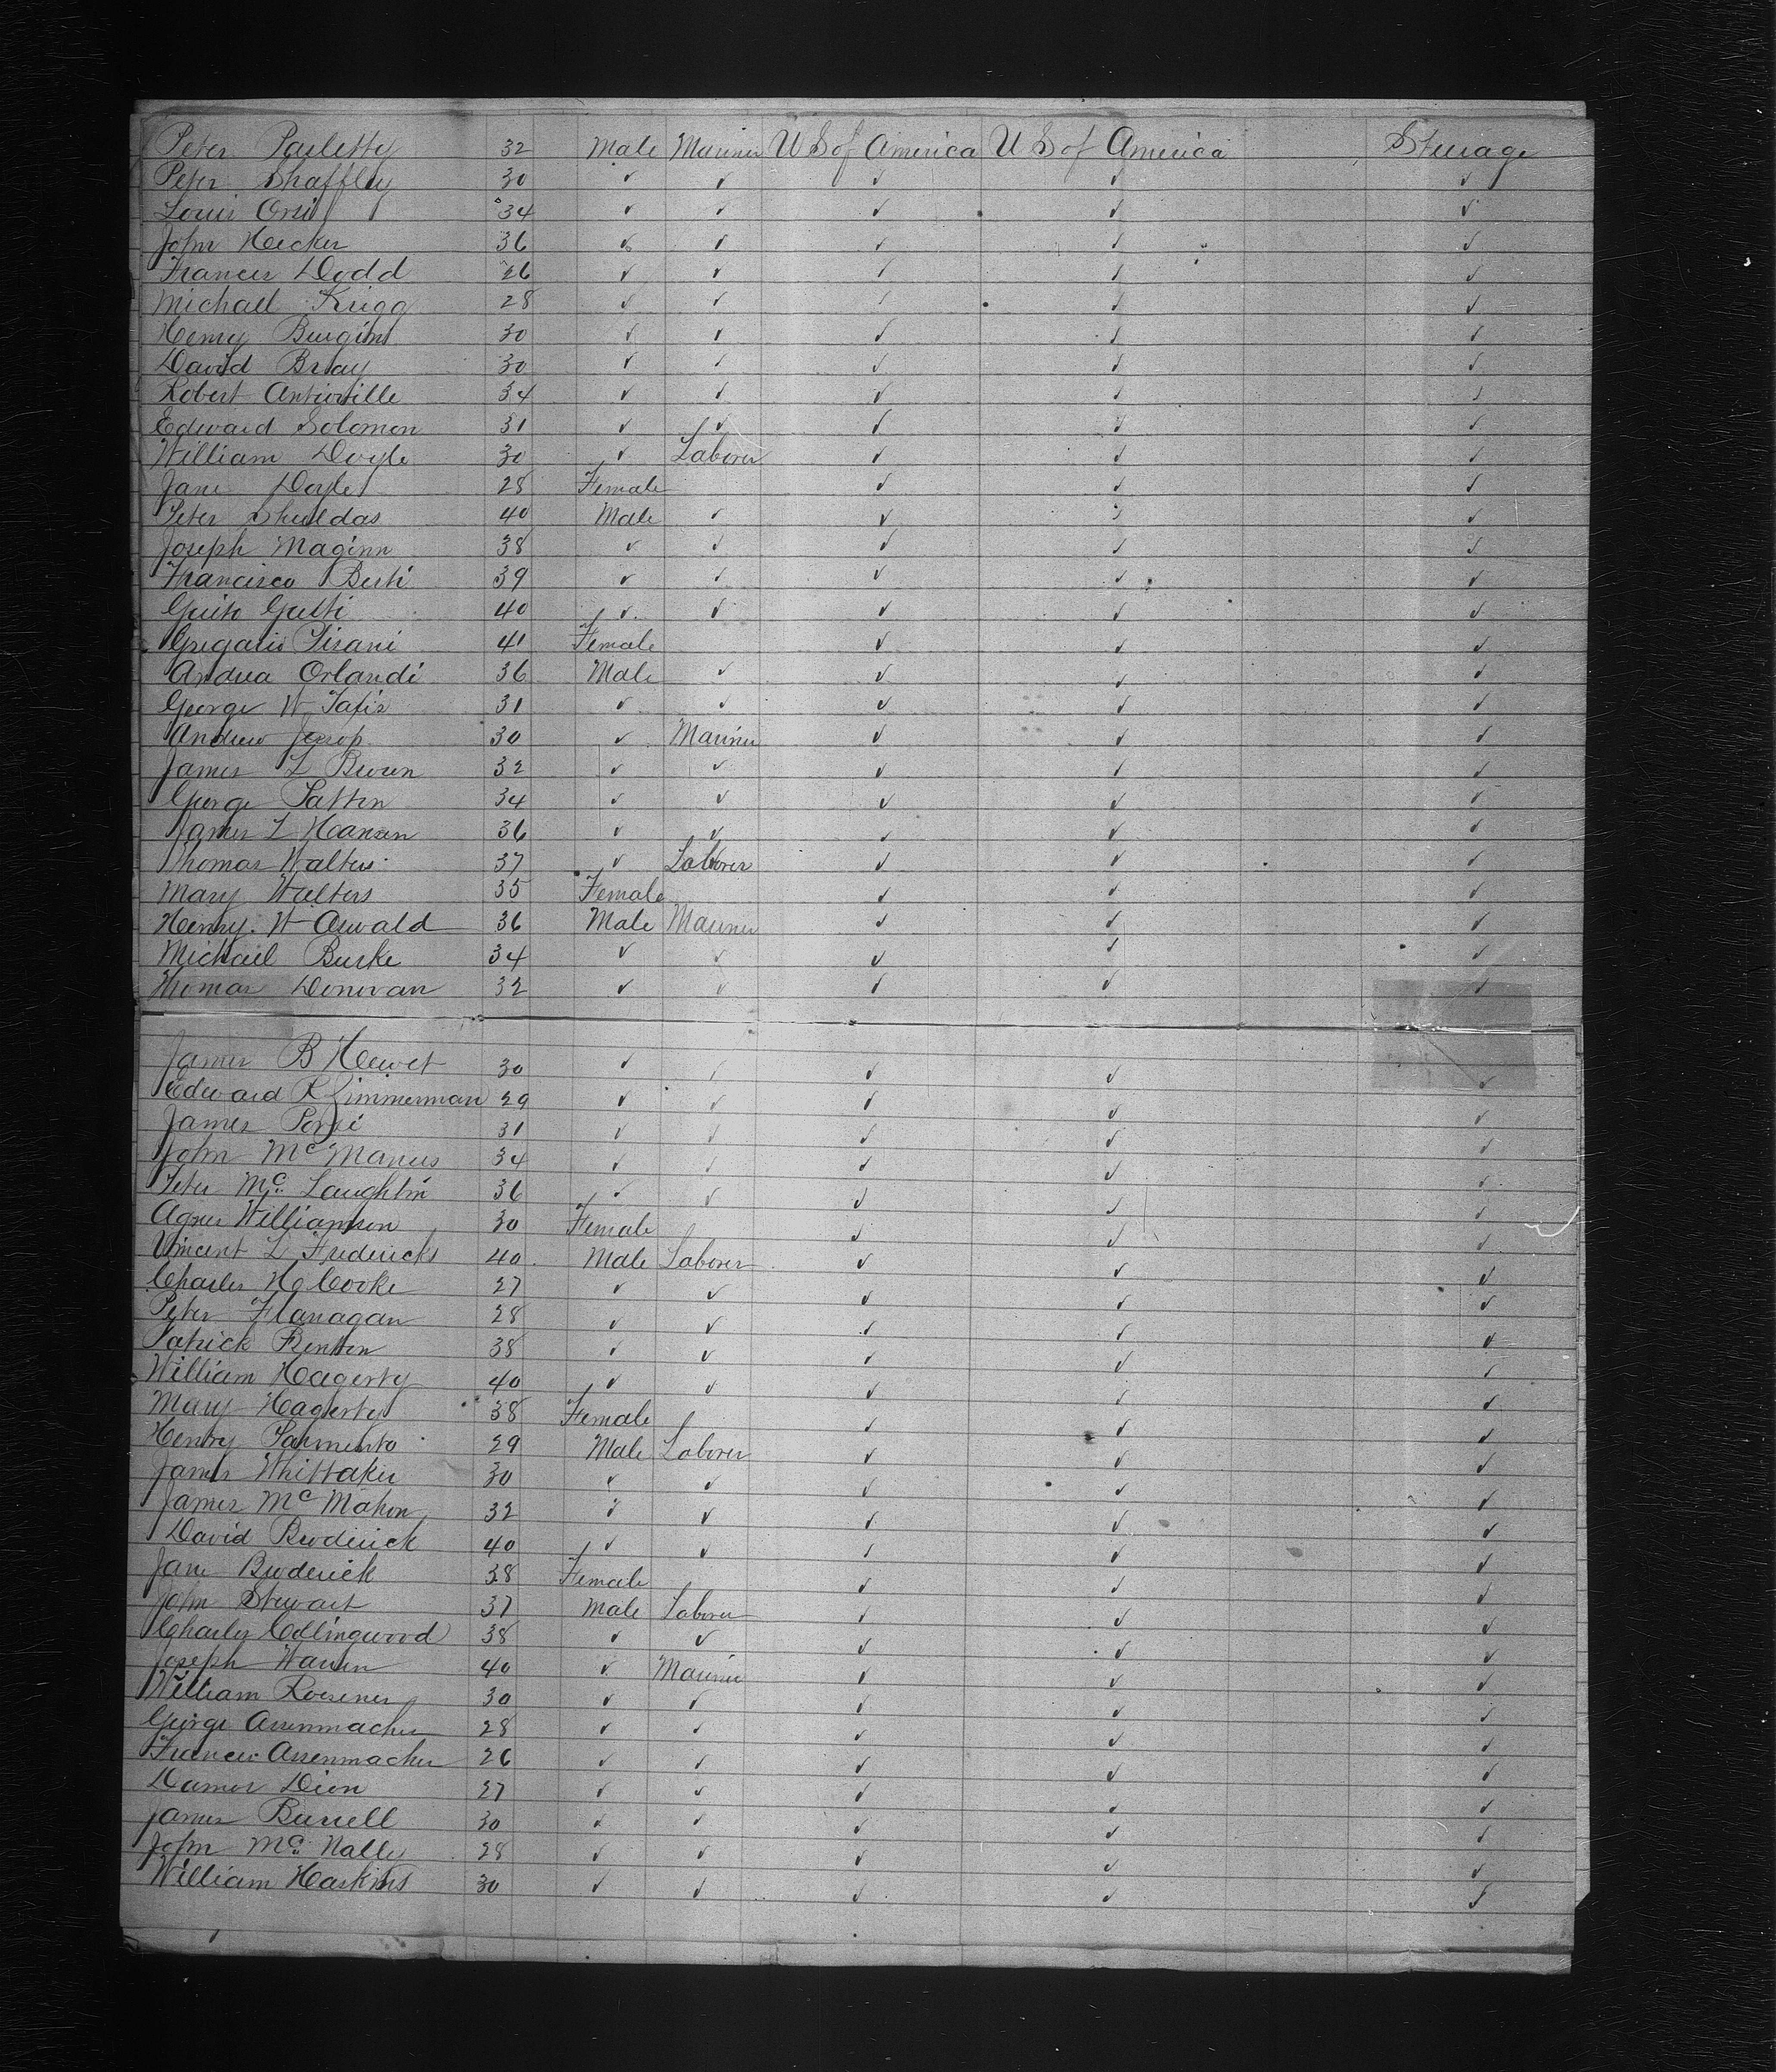 Peter Pasletty 32 Male Mariner U S of America U S of America Sterage
Peter Shaffley 30 ✓ ✓ ✓ ✓ ✓
Louis Orsi 34 ✓ ✓ ✓ ✓ ✓
John Hecker 36 ✓ ✓ ✓ ✓ ✓
Francis Dodd 26 ✓ ✓ ✓ ✓ ✓
Michael Krigg 28 ✓ ✓ ✓ ✓ ✓
Henry Burgins 30 ✓ ✓ ✓ ✓ ✓
David Bray 30 ✓ ✓ ✓ ✓ ✓
Robert 34 ✓ ✓ ✓ ✓ ✓
Edward Solomon 31 ✓ ✓ ✓ ✓ ✓
William Doyle 30 ✓ Laborer ✓ ✓ ✓
Jane Doyle 28 Female ✓ ✓ ✓
Peter Shuldas 40 Male ✓ ✓ ✓ ✓
Joseph Maginn 38 ✓ ✓ ✓ ✓ ✓
Francisco Berti 39 ✓ ✓ ✓ ✓ ✓
40 ✓ ✓ ✓ ✓ ✓
Pisani 41 Female ✓ ✓ ✓
Andrea Orlandi 36 Male ✓ ✓ ✓ ✓
George W 31 ✓ ✓ ✓ ✓ ✓
Andrew Jessop 30 ✓ Mariner ✓ ✓ ✓
James L Brown 32 ✓ ✓ ✓ ✓ ✓
George Patten 34 ✓ ✓ ✓ ✓ ✓
James L Hansen 36 ✓ ✓ ✓ ✓ ✓
Thomas Walters 37 ✓ Laborer ✓ ✓ ✓
Mary Walters 35 Female ✓ ✓ ✓
Henry W Oswald 36 Male Mariner ✓ ✓ ✓
Michael Burke 34 ✓ ✓ ✓ ✓ ✓
Thomas Donovan 32 ✓ ✓ ✓ ✓ ✓
James B Hewet 30 ✓ ✓ ✓ ✓ ✓
Edward R Zimmerman 29 ✓ ✓ ✓ ✓ ✓
James 31 ✓ ✓ ✓ ✓ ✓
John McManus 34 ✓ ✓ ✓ ✓ ✓
Peter McLaughlin 36 ✓ ✓ ✓ ✓ ✓
Agnes Williamson 30 Female ✓ ✓ ✓
Vincent L Fredericks 40 Male Laborer ✓ ✓ ✓
Charles H Cooke 27 ✓ ✓ ✓ ✓ ✓
Peter Flanagan 28 ✓ ✓ ✓ ✓ ✓
Patrick Fenton 38 ✓ ✓ ✓ ✓ ✓
William Hagerty 40 ✓ ✓ ✓ ✓ ✓
Mary Hagerty 38 Female ✓ ✓ ✓
Henry Sarmento 29 Male Laborer ✓ ✓ ✓
James Whittaker 30 ✓ ✓ ✓ ✓ ✓
James McMahon 32 ✓ ✓ ✓ ✓ ✓
David Broderick 40 ✓ ✓ ✓ ✓ ✓
Jane Broderick 38 Female ✓ ✓ ✓
John Stewart 37 Male Laborer ✓ ✓ ✓
Charles Collingwood 38 ✓ ✓ ✓ ✓ ✓
Joseph Warren 40 ✓ Mariner ✓ ✓ ✓
William Roesener 30 ✓ ✓ ✓ ✓ ✓
George Assenmacher 28 ✓ ✓ ✓ ✓ ✓
Francis Assenmacher 26 ✓ ✓ ✓ ✓ ✓
Damos Dion 27 ✓ ✓ ✓ ✓ ✓
James Burrell 30 ✓ ✓ ✓ ✓ ✓
John McNally 28 ✓ ✓ ✓ ✓ ✓
William Haskins 30 ✓ ✓ ✓ ✓ ✓